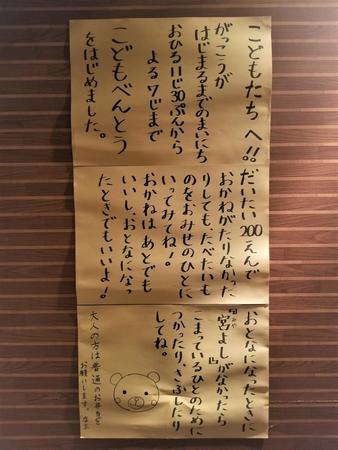 こどもたちへ!!
がっこうが
はじまるまでのまいにち
おひる11じ30ぷんから
よる7じまで
こどもべんとう
をはじめました。
だいたい200えんで
おかねがたりなかった
りしても、たべたいも
のをおみせのひとに
いってみてね!
おかねはあとでも
いいし、おとなになっ
たときでもいいよ!
おとなになったときに
宮よしがなかったら
みや
こまっているひとのために
つかったり、きふしたり
してね。
大人の方は普通のお弁当を
お願いします。店主